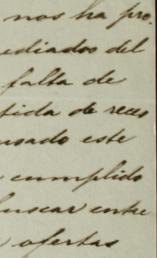 nos ha pro-
ediados del
falta de
tida de reces
usado este
cumplido
buscar entre
ofertas